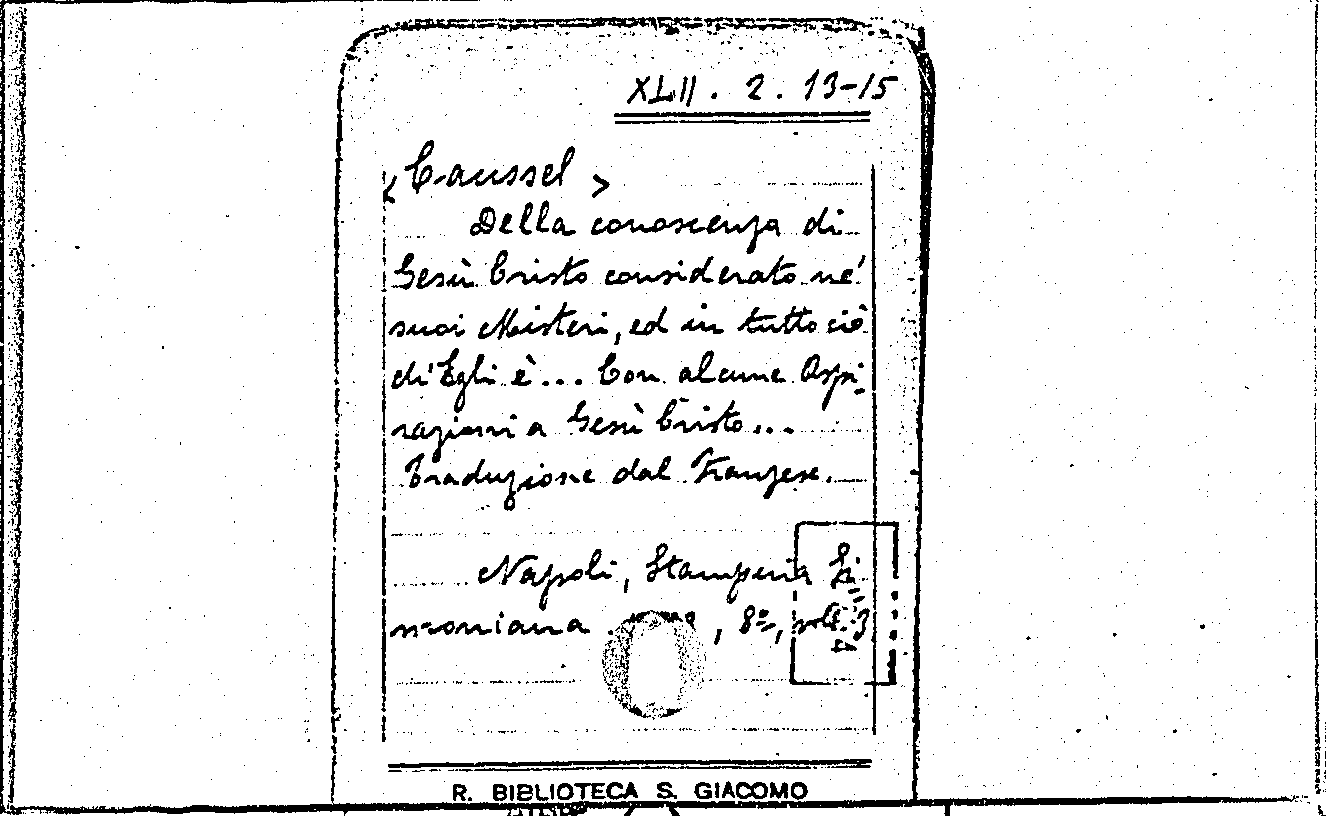 XLII. 2. 13-15
<Caussel>
Della conoscenza di
Gesù Cristo considerato ne'
suoi Misteri, ed in tutto ciò
ch'Egli è... Con alcune Aspi-
razioni a Gesù Cristo...
Traduzione dal Franzese.
Napoli, Stamperia Si-
moniana , 8º, voll. 3
R. BIBLIOTECA S. GIACOMO